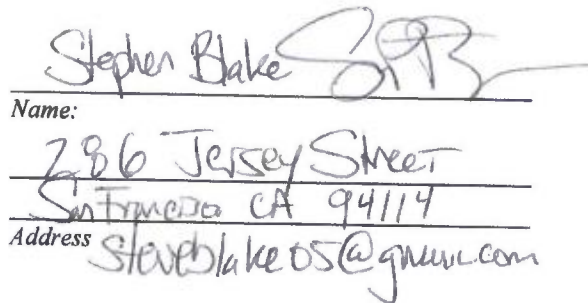 Stephen Blake
Name:
286 Jersey Street
San Francisco CA 94114
Address steveblake05@gmail.com